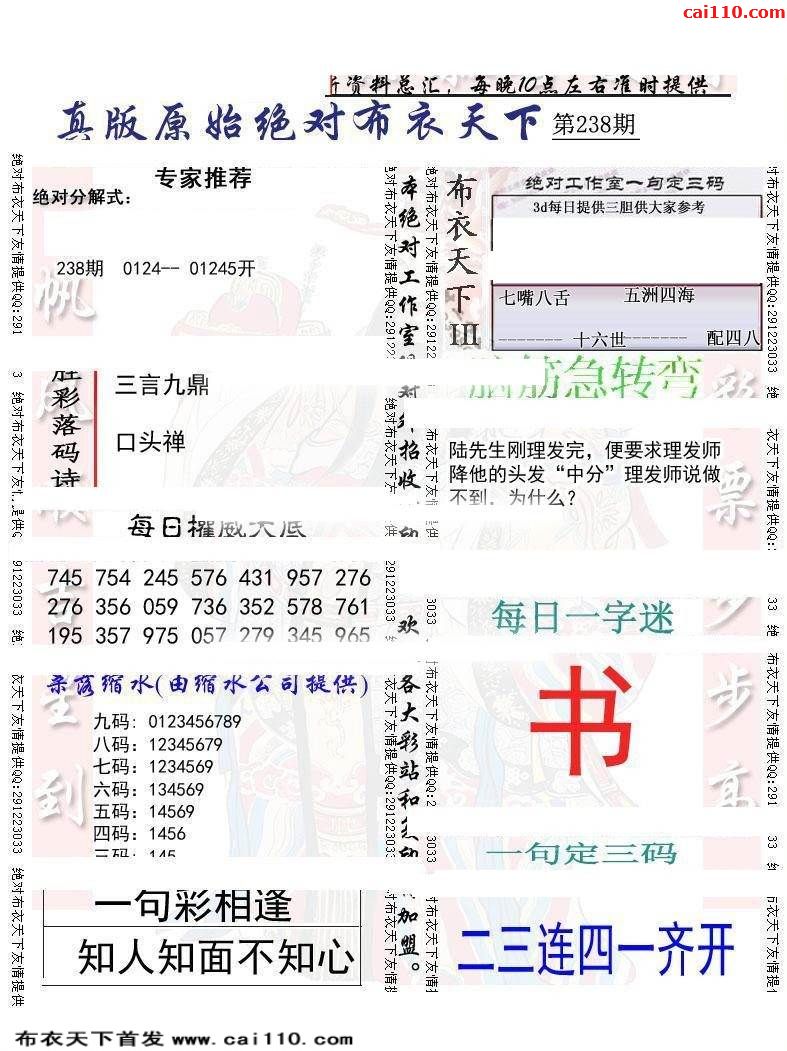 cai110.com
资料总汇, 每晚10点左右准时提供
真版原始绝对布衣天下 第238期
专家推荐
绝对分解式:
238期 0124-- 01245开
布衣天下III
绝对工作室一句定三码
3d每日提供三胆供大家参考
七嘴八舌 五洲四海
-------- 十六世------- 配四八
脑筋急转弯
彩落码诗
三言九鼎
口头禅
陆先生刚理发完，便要求理发师
降他的头发“中分”理发师说做
不到，为什么？
每日权威大底
745 754 245 576 431 957 276
276 356 059 736 352 578 761
195 357 975 057 279 345 965
每日一字迷
书
(由缩水公司提供)
九码: 0123456789
八码: 12345679
七码: 1234569
六码: 134569
五码: 14569
四码: 1456
三码: 145
一句定三码
二三连四一齐开
一句彩相逢
知人知面不知心
本绝对工作室
招收
欢
各大彩站和
加盟。
绝对布衣天下友情提供QQ:291223033
布衣天下首发 www.cai110.com